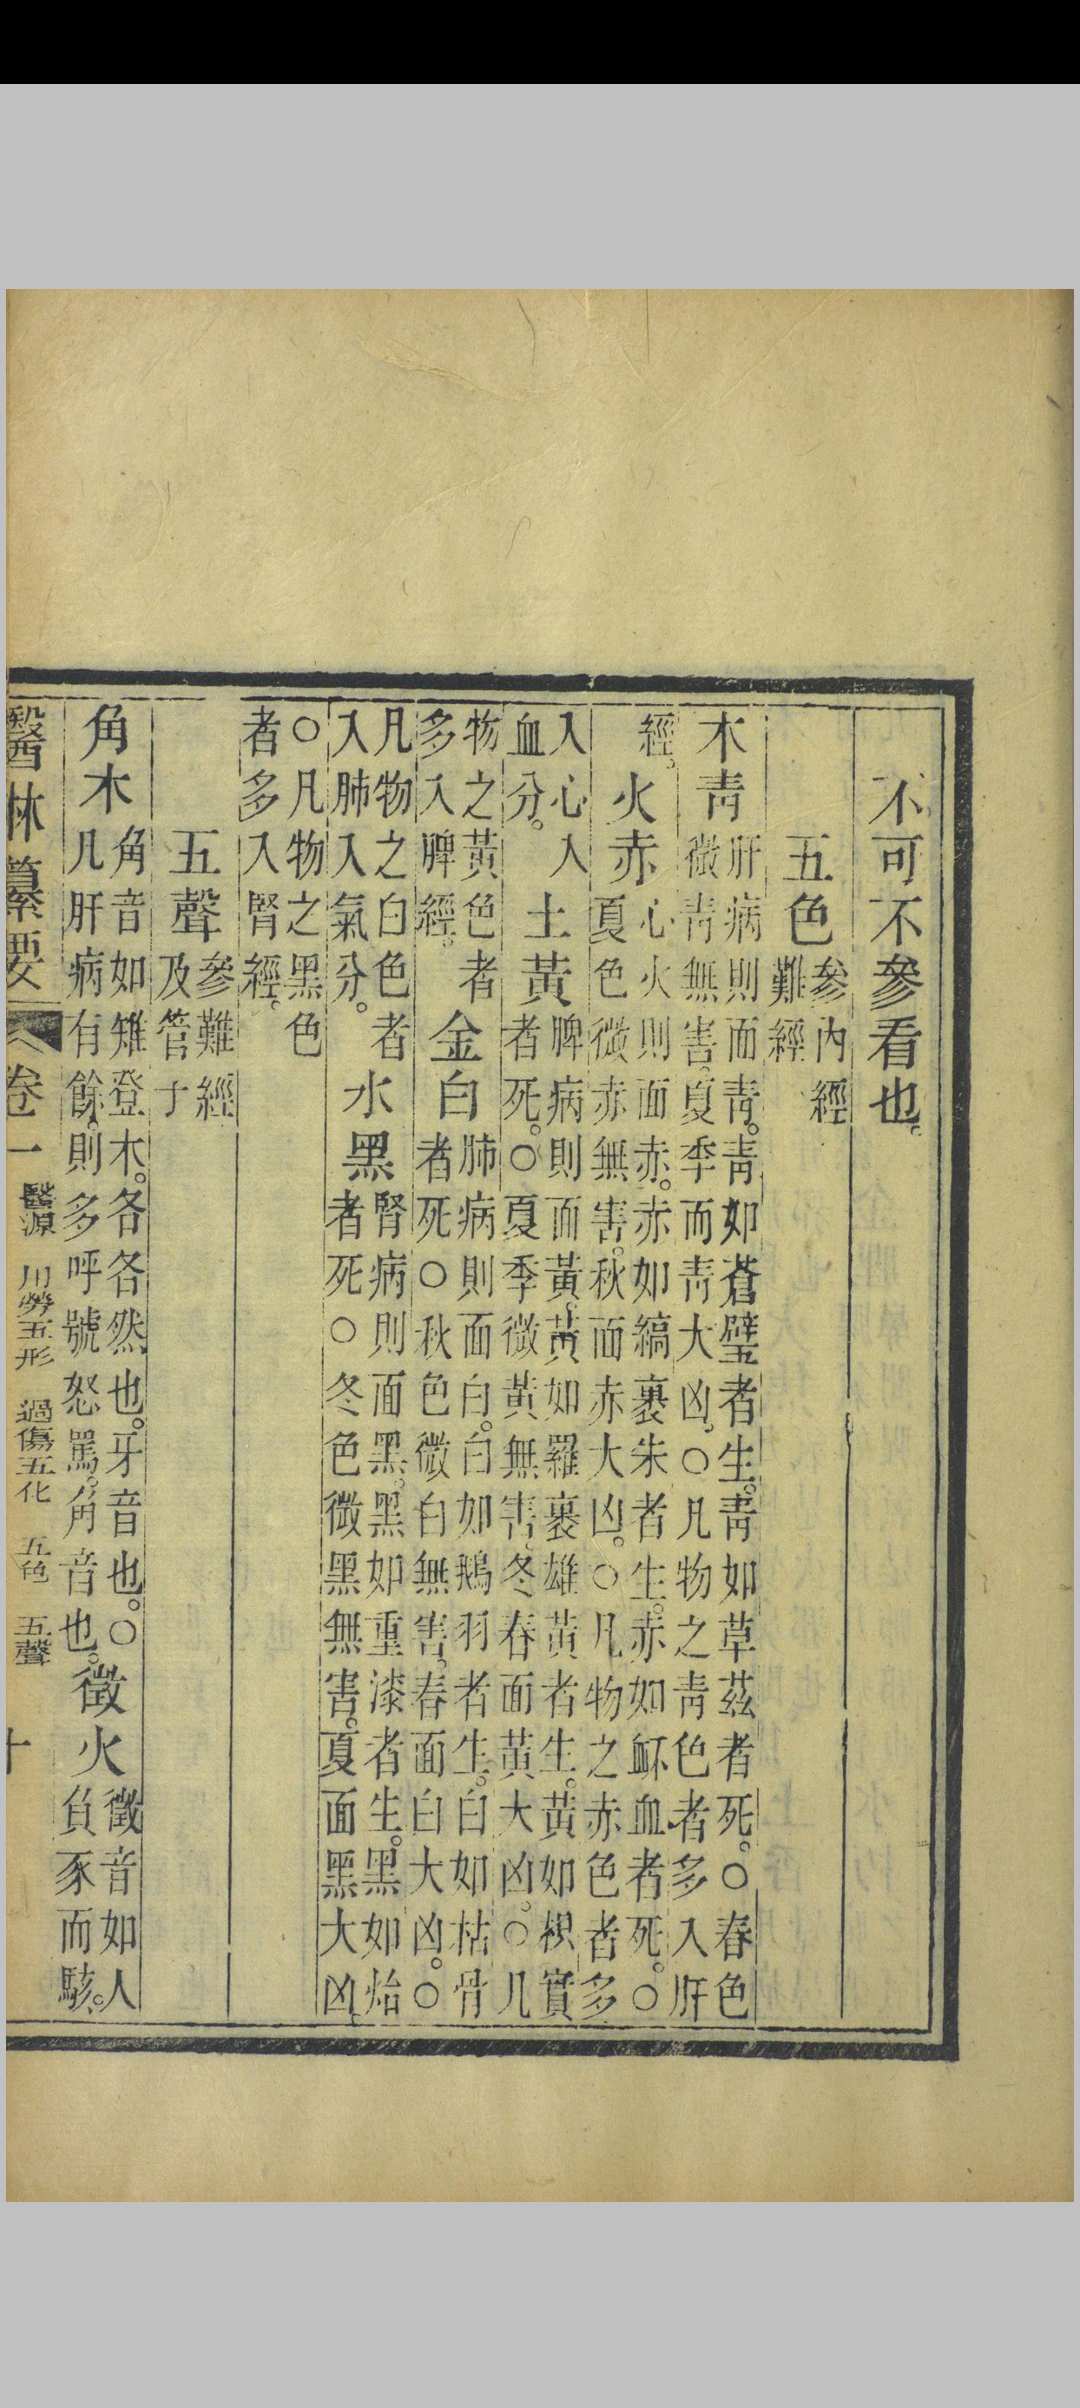 不可不參看也。
五色參內經難經
木青肝病則面青。青如蒼璧者生。青如草茲者死。○春色微青無害。夏季而青大凶。○凡物之青色者多入肝
經。火赤心火則面赤。赤如縞裹朱者生。赤如衃血者死。○夏色微赤無害。秋面赤大凶。○凡物之赤色者多
入心入血分。土黃脾病則面黃。黃如羅裹雄黃者生。黃如枳實者死。○夏季微黃無害。冬春面黃大凶。○凡
物之黃色者多入脾經。金白肺病則面白。白如鵝羽者生。白如枯骨者死○秋色微白無害。春面白大凶。○
凡物之白色者入肺入氣分。水黑腎病則面黑。黑如重漆者生。黑如炲者死○冬色微黑無害。夏面黑大凶
○凡物之黑色者多入腎經。
五聲參難經及管子
角木角音如雉登木。各各然也。牙音也。○凡肝病有餘。則多呼號怒罵。角音也。徵火徵音如人負豕而駭。
醫林纂要 卷一 醫源 川勞五形 過傷五化 五色 五聲 十